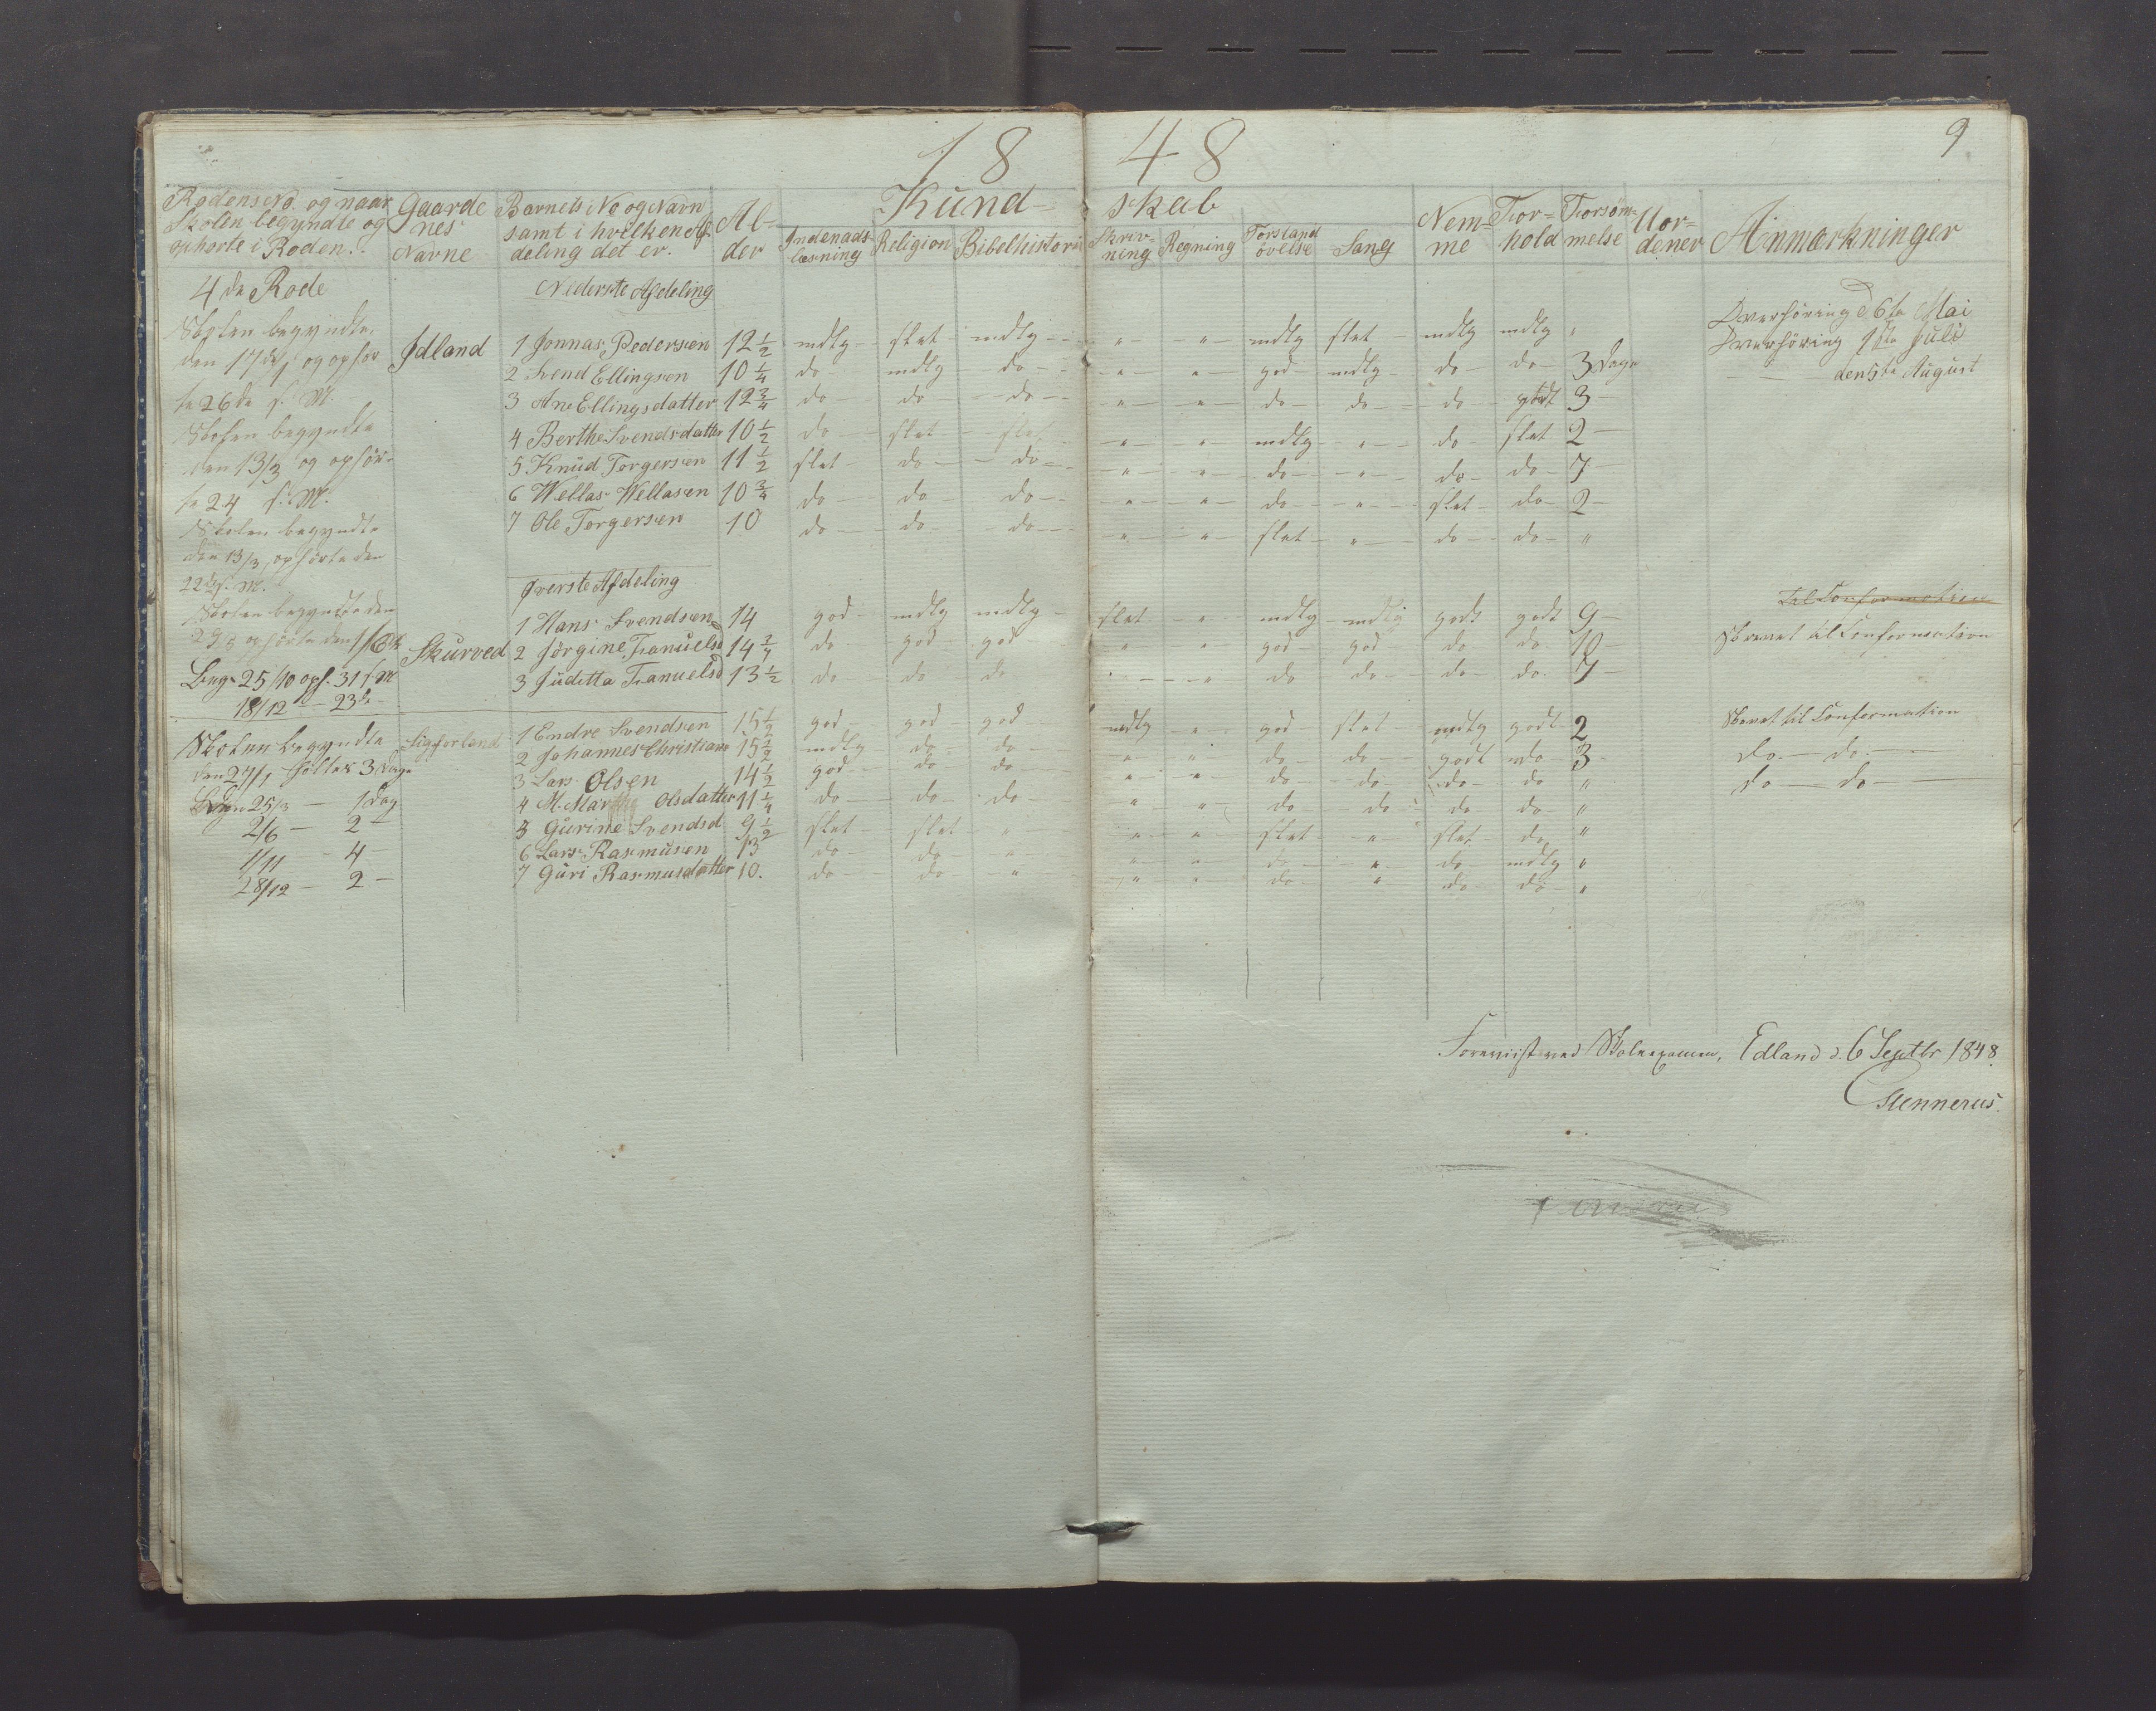 18 48
9
Rodens No. og naar Skolen begyndte og ophørte i Roden. | Gaardenes Navne | Barnets No og Navn samt i hvilken Afdeling det er. | Alder | Kundskab | Indenadslæsning | Religion | Bibelhistorie | Skrivning | Regning | Forstandøvelse | Sang | Nemme | Forhold | Forsømmelse | Uordener | Anmærkninger
4de Rode
Nederste Afdeling
Skolen begyndte
den 17de/1 og ophør
te 26de s. M.
Skolen begyndte
den 13/3 og ophør-
te 24 s. M.
Skolen begyndte
den 13/3, ophørte den
22de s. M.
Skolen begyndte den
ophørte den
Beg. 25/10 oph. 31 s M
18/12 — 23de
Idland
1 Jonnas Pedersen 12 1/2 mdlg — slet — mdlg — " — " — mdlg slet — mdlg mdlg "
2 Svend Ellingsen 10 1/4 do — mdlg do — " — " — god — mdlg — do — do — 3 Dage
3 Ane Ellingsdatter 12 3/4 do — do — do — " — " — do — do — do godt 3 —
4 Berthe Svendsdatter 10 1/2 do — slet — slet — " — " mdlg — " — do — slet 2 —
5 Knud Torgersen 11 1/2 slet — do — do — " — " — do — " — do — do — 7 —
6 Wellas Wellasen 10 3/4 do — do — do — " — " — do — " — slet — do — 2 —
7 Ole Torgersen 10 do — do — do — " — " — slet — " — do — do — "
Overhöring d 6te Mai
Overhöring 1ste Juli
— den 5te August
Øverste Afdeling
1 Hans Svendsen 14 god — mdlg — mdlg — slet — " — mdlg — mdlg godt godt 9 —
Skurved 2 Jørgine Tanuelsd 14 3/4 do — god — god — " — " god — god — do do 10 —
3 Juditta Tanuelsd 13 1/2 do — do — do — " — do do — do — do. 7 —
til Conformation
Skrevet til Conformation
Skolen begyndte
den 27/1 holtes 3 Dage
Begn 25/3 — 1 Dag
2/6 — 2 —
1/11 — 4 —
28/12 — 2 —
Sigforland
1 Endre Svendsen 15 1/2 god — god — god — mdlg — " — god — slet — mdlg godt 2
2 Johannes Christians 15 1/2 mdlg do — do — " — " — do — do — godt do 3 —
3 Lars Olsen 14 1/2 god — do — do — " — " — do — do — do — do "
4 M. Marthe Olsdatter 11 1/4 do — do — do — " — " — do — do — do do — "
5 Gurine Svendsd 9 1/2 slet — slet " — " — " — slet — " — slet — do "
6 Lars Rasmusen 13 do — do " — " — " — do — " — do — mdlg "
7 Guri Rasmusdatter 10. do — do — " — " — " — do — " do — do — "
Skrevet til Conformation
do — do —
do — do —
Foreviist ved Skoleexamen, Edland d. 6 Septbr 1848.